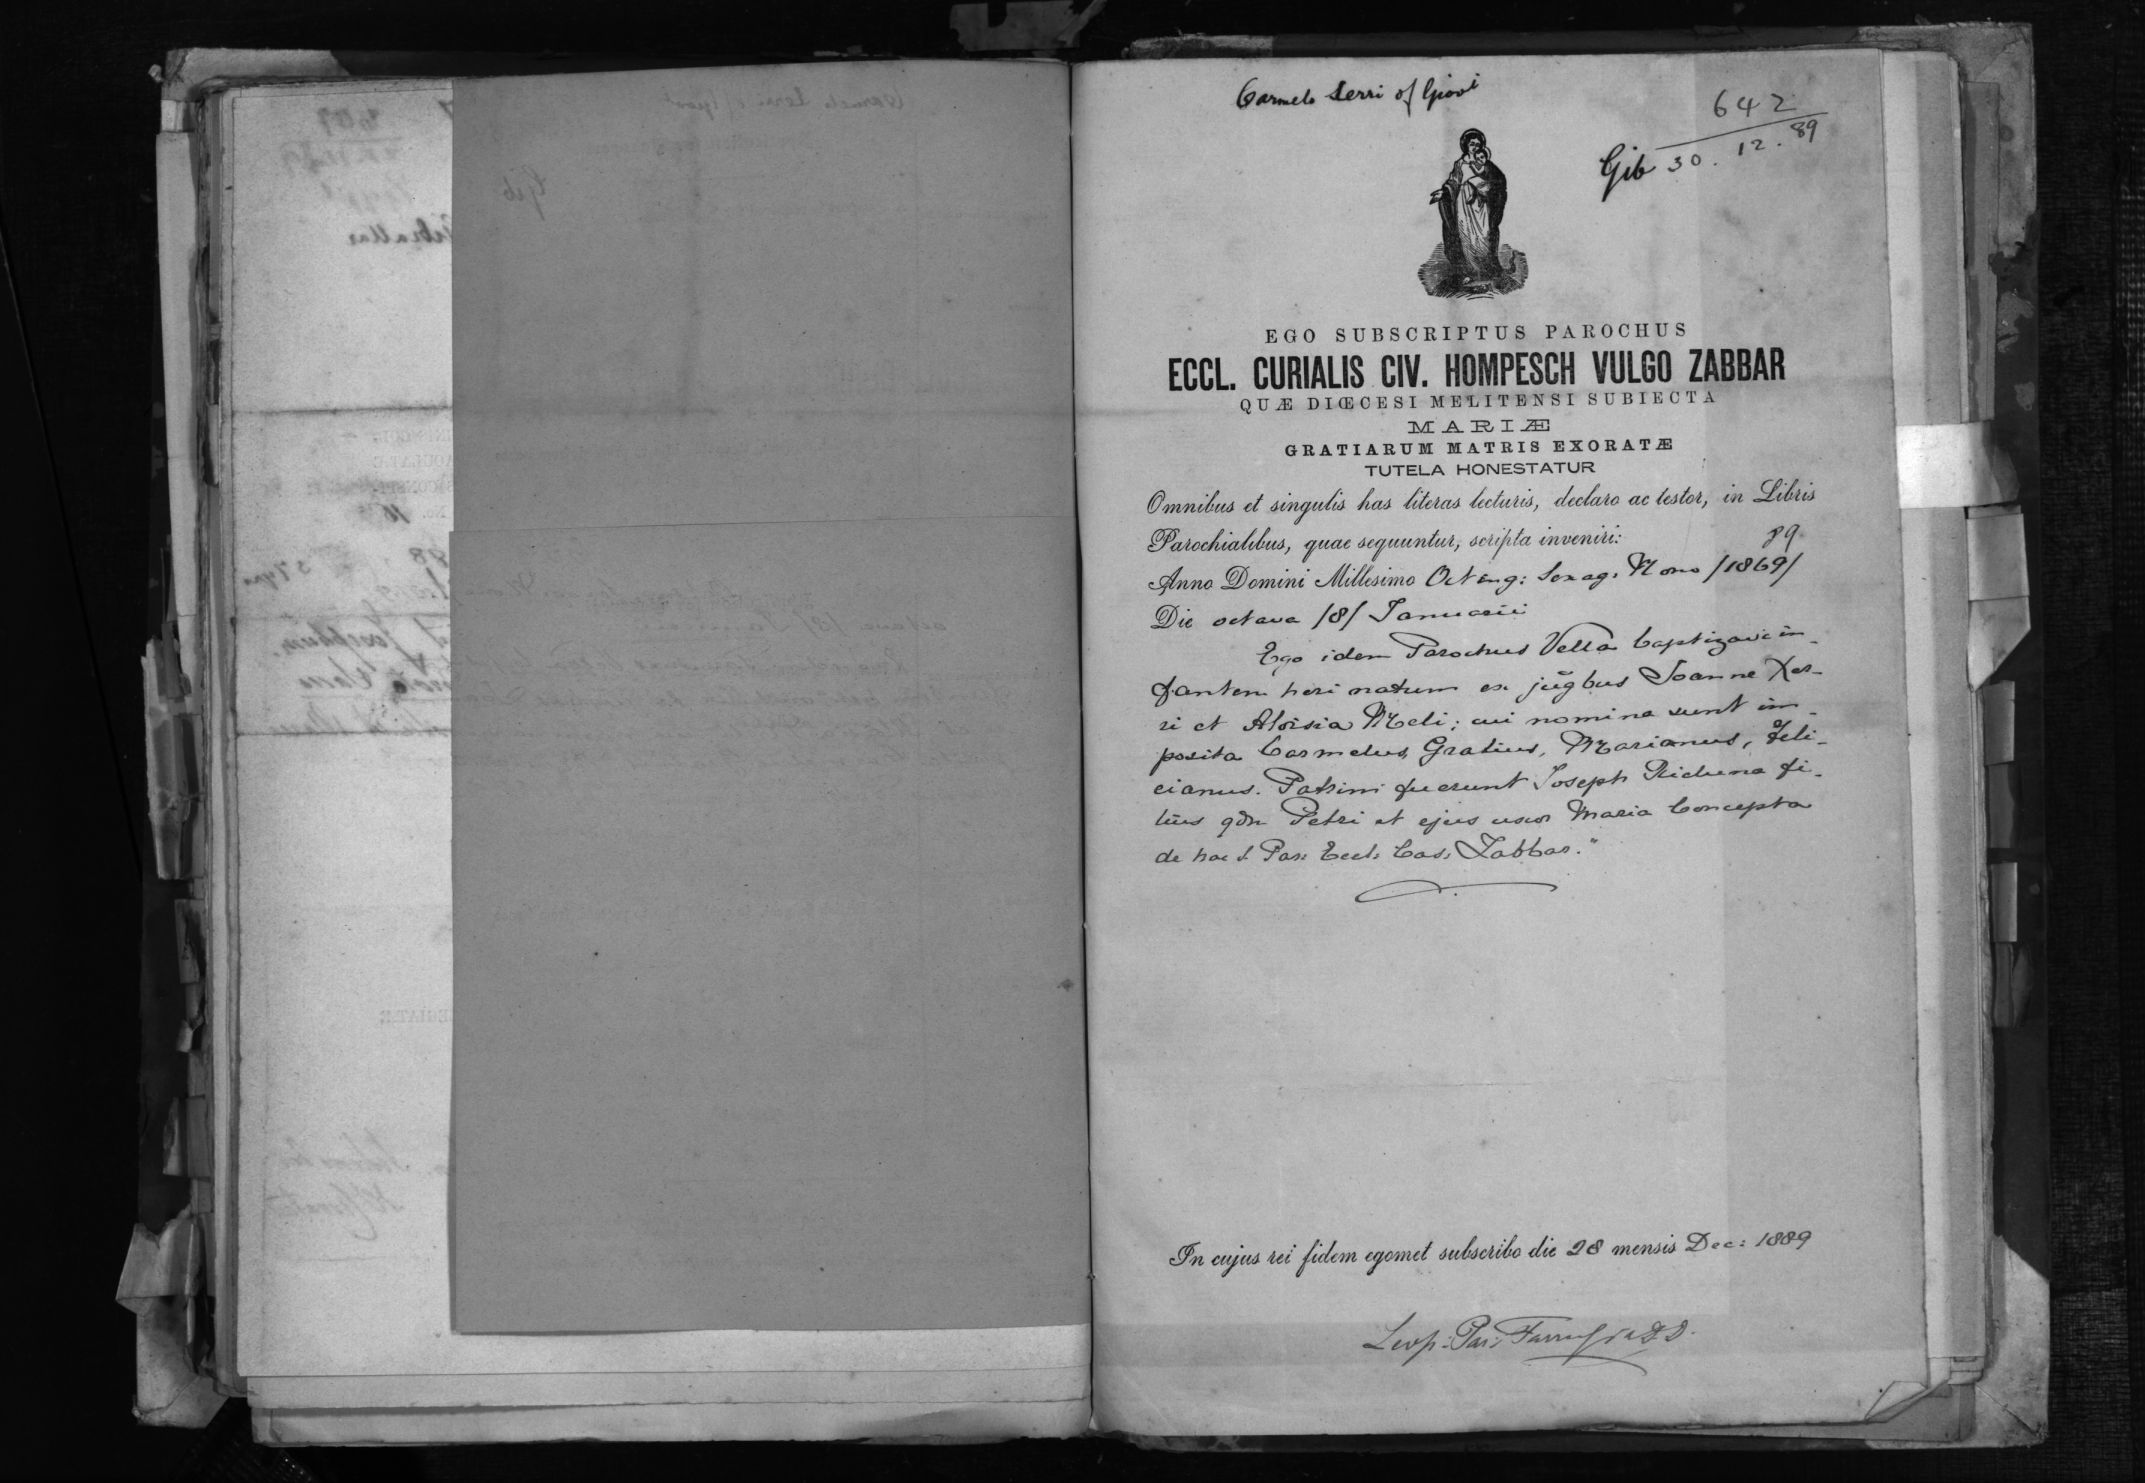 Carmelo Serri of Giovi
642
Gib 30. 12. 89
EGO SUBSCRIPTUS PAROCHUS
ECCL. CURIALIS CIV. HOMPESCH VULGO ZABBAR
QUÆ DIŒCESI MELITENSI SUBIECTA
MARIÆ
GRATIARUM MATRIS EXORATÆ
TUTELA HONESTATUR
Omnibus et singulis has literas lecturis, declaro ac testor, in Libris
Parochialibus, quae sequuntur, scripta inveniri:
89
Anno Domini Millesimo Octing: Sexag: Nono /1869/
Die octava /8/ Januarii
Ego idem Parochus Vella baptizavi in-
fantem heri natum ex jugbus Joanne Xer-
ri et Aloisia Meli; cui nomina sunt im-
posita Carmelus, Gratius, Marianus, Feli-
cianus. Patrini fuerunt Joseph Richena fi-
lius qdm Petri et ejus uxor Maria Concepta
de hac S. Par: Eccl: Cas: Zabbar."
In cujus rei fidem egomet subscribo die 28 mensis Dec: 1889
Leop: Par: Farrugia D.D.